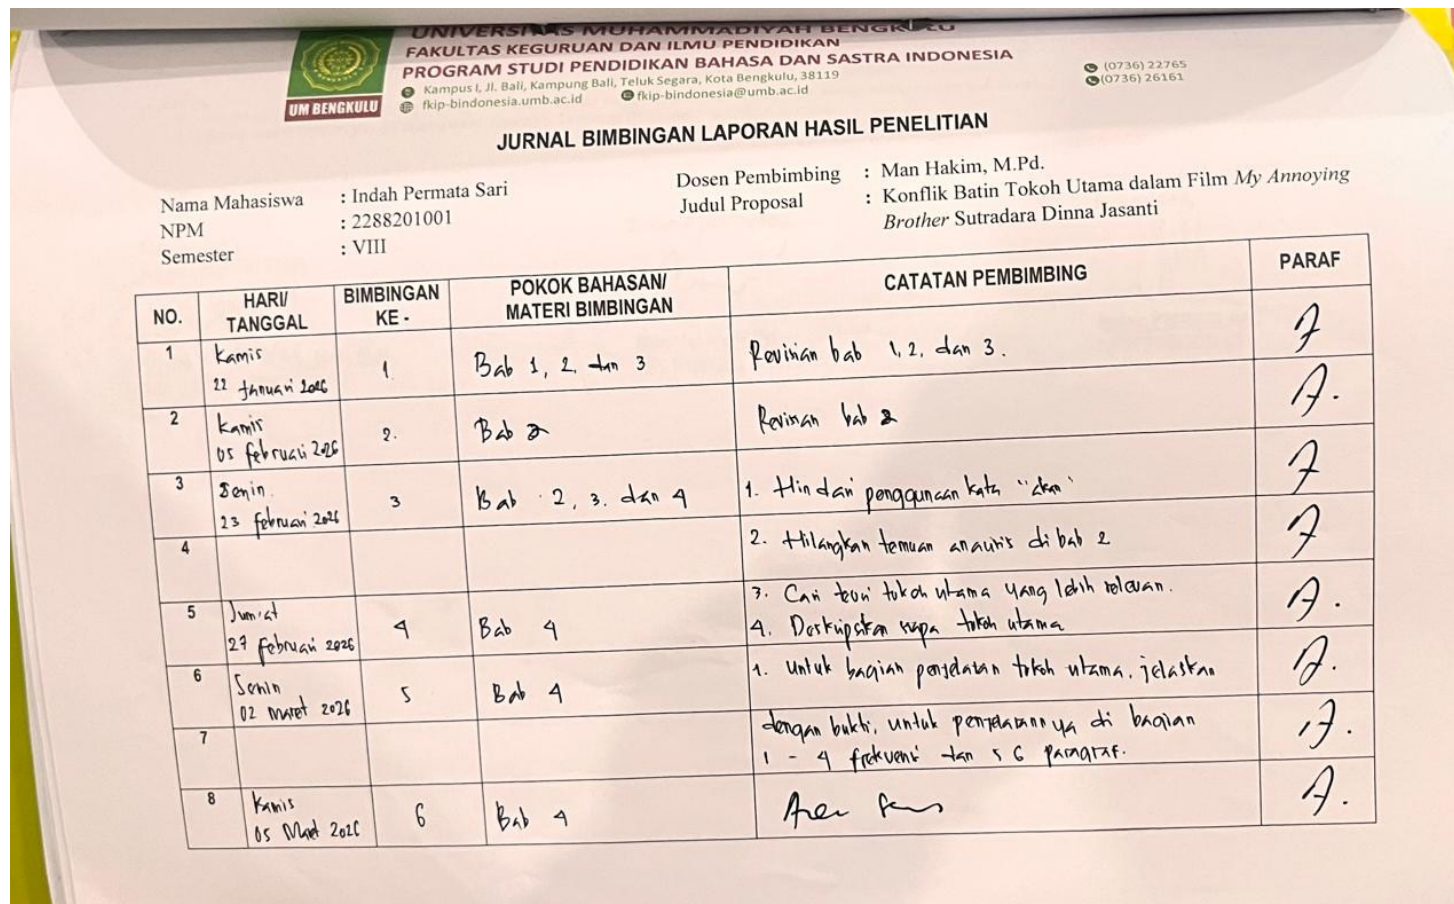 UNIVERSITAS MUHAMMADIYAH BENGKULU
FAKULTAS KEGURUAN DAN ILMU PENDIDIKAN
PROGRAM STUDI PENDIDIKAN BAHASA DAN SASTRA INDONESIA
Kampus I, Jl. Bali, Kampung Bali, Teluk Segara, Kota Bengkulu, 38119
fkip-bindonesia.umb.ac.id fkip-bindonesia@umb.ac.id
(0736) 22765
(0736) 26161
UM BENGKULU
JURNAL BIMBINGAN LAPORAN HASIL PENELITIAN
Nama Mahasiswa : Indah Permata Sari
NPM : 2288201001
Semester : VIII
Dosen Pembimbing : Man Hakim, M.Pd.
Judul Proposal : Konflik Batin Tokoh Utama dalam Film My Annoying
Brother Sutradara Dinna Jasanti
NO. HARI/ TANGGAL BIMBINGAN KE - POKOK BAHASAN/ MATERI BIMBINGAN CATATAN PEMBIMBING PARAF
1 Kamis 22 Januari 2026 1. Bab 1, 2, dan 3 Revisian bab 1, 2, dan 3.
2 Kamis 05 februari 2026 2. Bab 2 Revisian bab 2
3 Senin. 23 februari 2026 3 Bab 2, 3. dan 4 1. Hindari penggunaan kata "akan"
4 2. Hilangkan temuan analisis di bab 2
5 Jum'at 27 februari 2026 4 Bab 4 3. Cari teori tokoh utama yang lebih relevan.
4. Deskripsikan siapa tokoh utama
6 Senin 02 Maret 2026 5 Bab 4 1. Untuk bagian penjelasan tokoh utama, jelaskan
7 dengan bukti, untuk penjelasannya di bagian
1 - 4 frekuensi dan 5 6 paragraf.
8 Kamis 05 Maret 2026 6 Bab 4